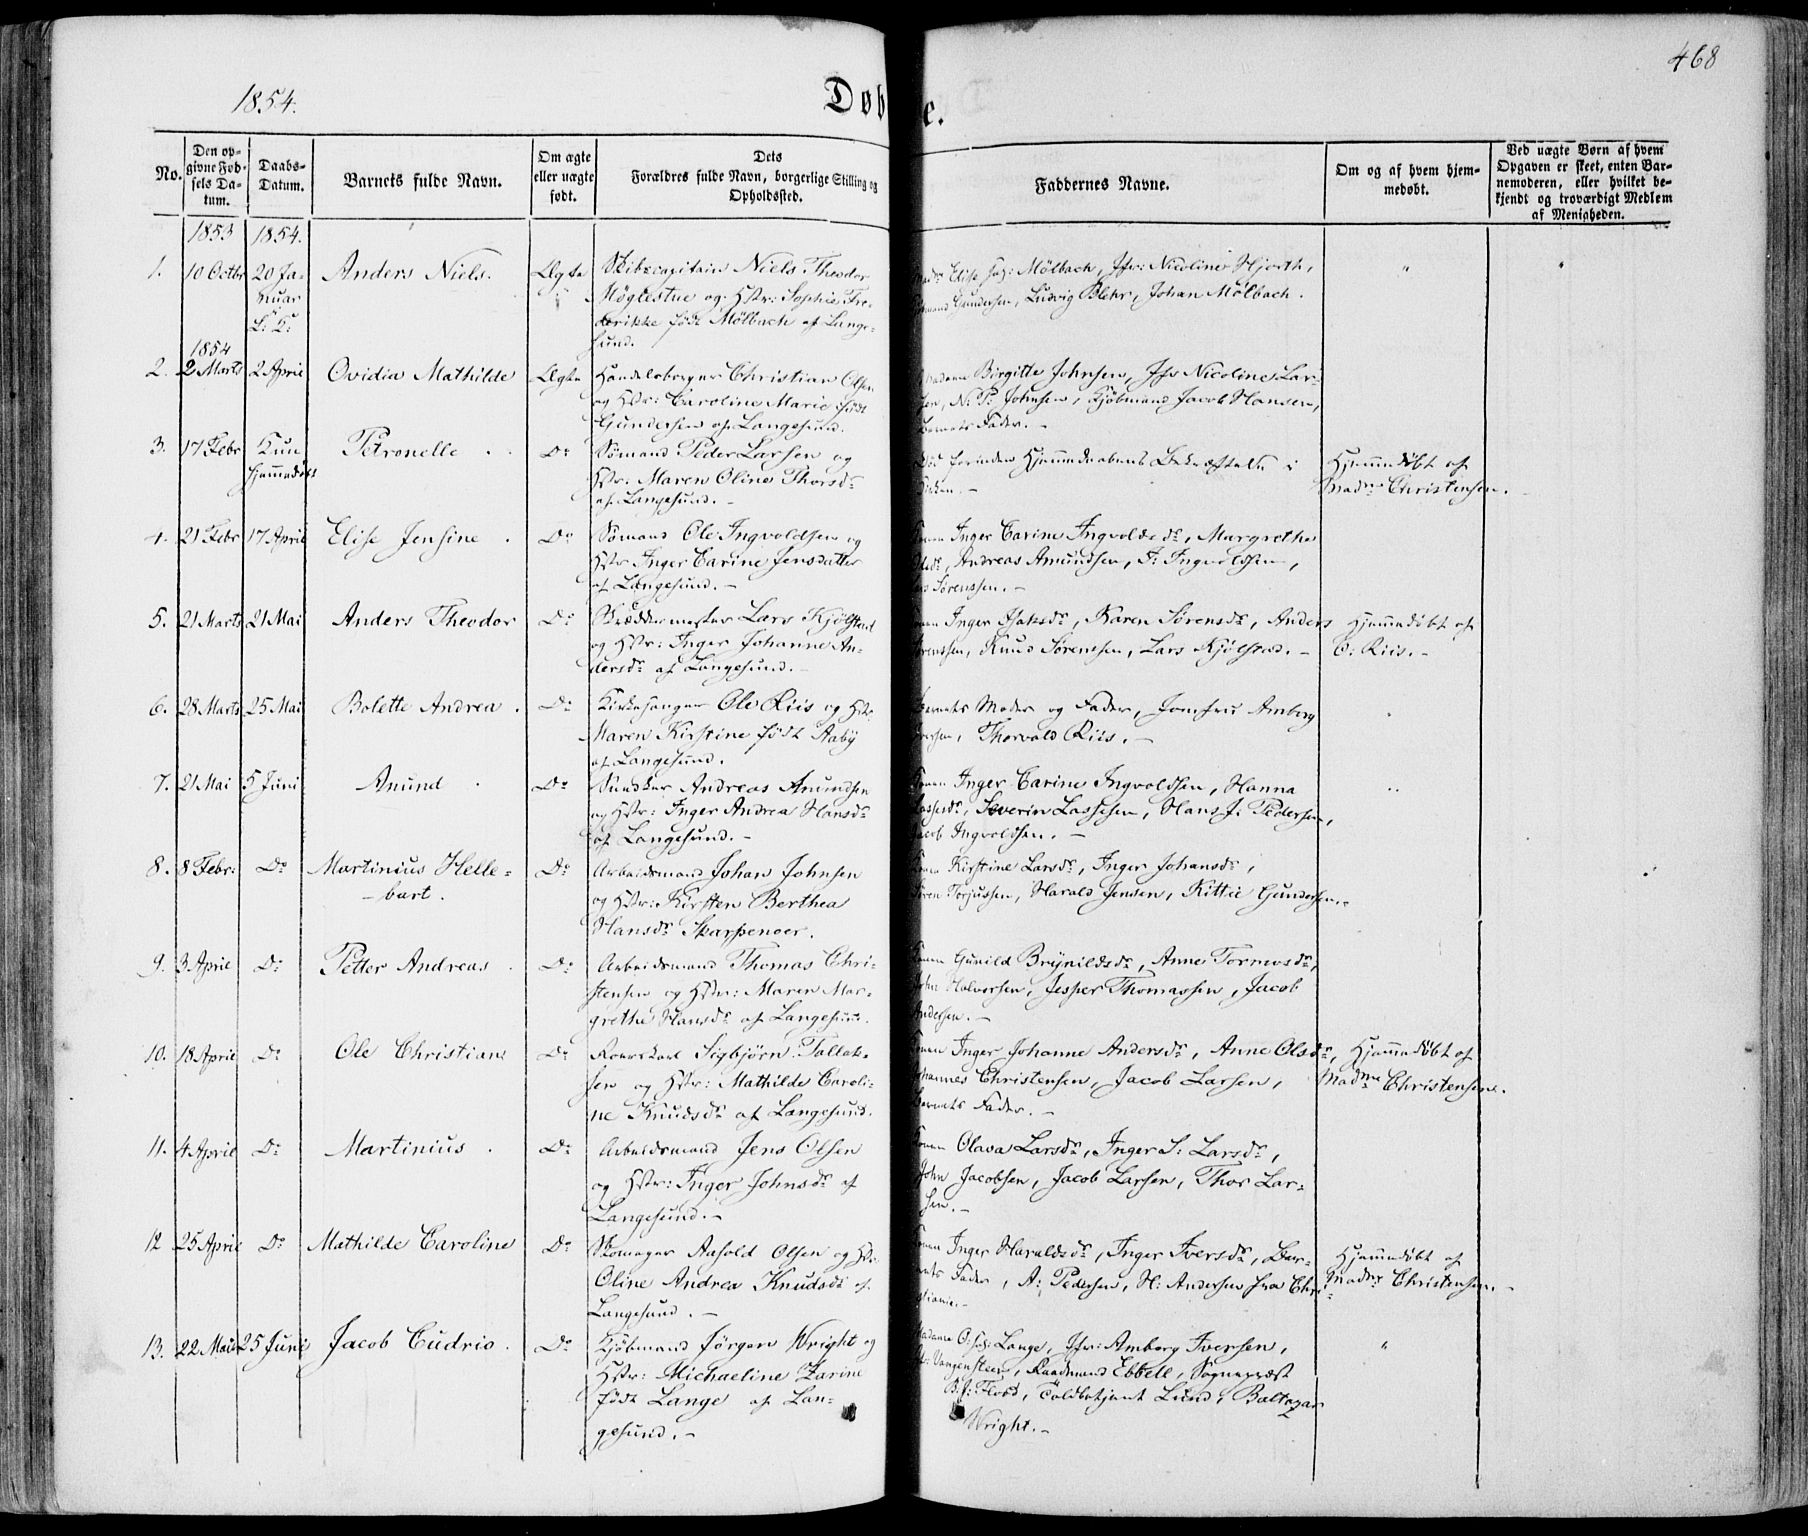 468
1854.
Døb e.
No.
Den op-
givne Fød-
sels Da-
tum.
Daabs-
Datum.
Barnets fulde Navn.
Om ægte
eller uægte
født.
Dets
Forældres fulde Navn, borgerlige Stilling og
Opholdssted.
Faddernes Navne.
Om og af hvem hjem-
medøbt.
Ved uægte Børn af hvem
Opgaven er skeet, enten Bar-
nemoderen, eller hvilket be-
kjendt og troværdigt Medlem
af Menigheden.
1853 1854.
1. 10 Octbr 20 Ja-
nuar
L: K:
Anders Niels. Ægte
Skibscapitain Niels Theodor
Møglestue og Hstr: Sophie Fre-
derikke født Mølbach af Lange-
sund.
Elise sag: Mølbach, Jfr: Nicoline Hjorth,
Gundersen, Ludvig Blehr, Johan Mølbach.
1854
2. 2 Marts 2 April Ovidia Mathilde Ægte
Handelsborger Christian Olsen
og Hstr: Caroline Marie født
Gundersen af Langesund.
Madame Birgitte Johnsen, Jfr Nicoline Lar-
sen, N. P. Johnsen, Kjøbmand Jacob Hansen,
Barnets Fader. -
3. 17 Febr Kun
hjemmedøbt
Petronelle Do
Sømand Peder Larsen og
Hstr. Maren Oline Thorsdr
af Langesund. -
Død forinden Hjemmedaabens Bekræftelse i
Kirken. -
Hjemmedøbt af
Madme Christensen.
4. 21 Febr 17 April Elise Jensine Do
Sømand Ole Ingvoldsen og
Hstr Inger Carine Jensdatter
af Langesund. -
Konen Inger Carine Ingvoldsdr, Margrethe
Andreas Amundsen, Ingvoldsen,
Sørenssen. -
5. 21 Marts 21 Mai Anders Theodor Do
Skræddermester Lars Kjølstad
og Hstr: Inger Johanne An-
dersdr af Langesund. -
Konen Inger Isaksdr, Karen Sørensdr, Anders
Sørenssen, Knud Sørenssen, Lars Kjølstad. -
Hjemmedøbt af
O. Riis. -
6. 28 Marts 25 Mai Bolette Andrea. Do
Kirkesanger Ole Riis og Hstr
Maren Kirstine født Aaby
af Langesund.
Barnets Moder og Fader, Jomfru Amborg
Iversen, Thorvald Riis. -
7. 21 Mai 5 Juni Anund Do
Snedker Andreas Anundsen
og Hstr: Inger Andrea Hansdr
af Langesund. -
Konen Inger Carine Ingvoldsen, Hanna
Lassesdr, Severin Lassesen, Hans J. Pedersen,
Jacob Ingvoldsen. -
8. 8 Febr: Do Martinius Helle-
bart. Do
Arbeidsmand Johan Johnsen
og Hstr: Kirsten Berthea
Hansdr Skarpenoer.
Konen Kirstine Larsdr, Inger Johansdr,
Søren Torjussen, Harald Jensen, Kittil Gundersen.
9. 3 April Do Petter Andreas Do
Arbeidsmand Thomas Chri-
stensen og Hstr: Maren Mar-
grethe Hansdr af Langesund.
Konen Gunild Brynildsdr, Anne Tormosdr,
John Halvorsen, Jesper Thomassen, Jacob
Andersen. -
10. 18 April Do Ole Christian Do
Sigbjørn Tallak-
sen og Hstr: Mathilde Caroli-
ne Knudsdr af Langesund.
Konen Inger Johanne Andersdr, Anne Olsdr,
Johannes Christensen, Jacob Larsen,
Barnets Fader. -
Hjemmedøbt af
Madme Christensen.
11. 4 April Do Martinius Do
Arbeidsmand Jens Olsen
og Hstr: Inger Johnsdr af
Langesund. -
Konen Olava Larsdr, Inger S: Larsdr,
John Jacobsen, Jacob Larsen, Thor Lar-
sen. -
12 25 April Do Mathilde Caroline Do
Skomager Aasold Olsen og Hstr
Oline Andrea Knudsdr af
Langesund. -
Konen Inger Haraldsdr, Inger Iversdr, Bar-
nets Fader, A: Pedersen, H: Andersen fra Chri-
stiania. -
Hjemmedøbt af
Madme Christensen. -
13. 22 Mai 25 Juni Jacob Cudrio. Do
Kjøbmand Jørgen Wright og
Hstr: Michaeline Zarine
født Lange af Lan-
gesund. -
Madame O: sag: Lange, Jfr: Amborg Iversen,
Vangensteen, Raadmand Ebbell, Sognepræst
B. J: Flood, Toldbetjent Lund, Baltazar
Wright. -